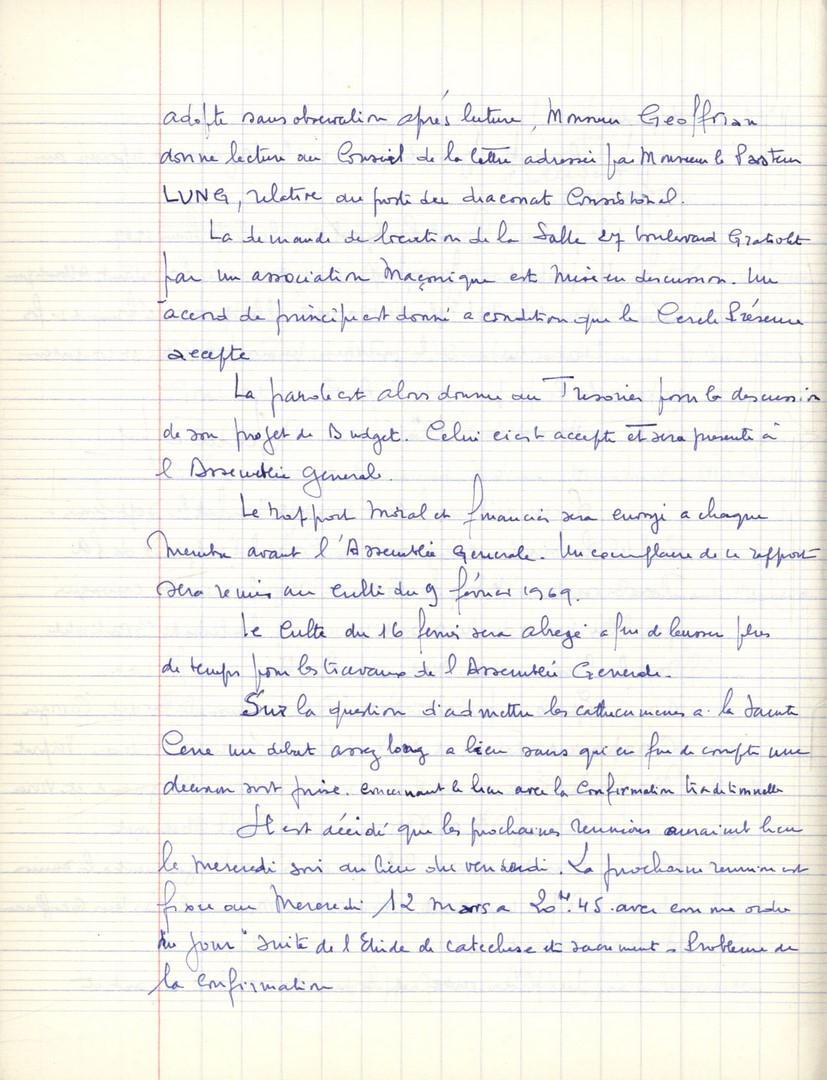 adopté sans observation après lecture, Monsieur Geoffrian
donne lecture au Conseil de la lettre adressée par Monsieur le Pasteur
LUNG, relative au poste du diaconat Consistorial.
La demande de location de la Salle 27 boulevard Gratiolet
par un association Maçonique est mise en discussion. Un
accord de principe est donné a condition que le Cercle Présence
accepte
La parole est alors donnée au Trésorier pour la discussion
de son projet de Budget. Celui ci est accepté et sera presenté à
l'Assemblée générale.
Le rapport Moral et financier sera envoyé a chaque
membre avant l'Assemblée Generale. Un exemplaire de ce rapport
sera remis au culte du 9 février 1969.
Le Culte du 16 fevrier sera abregé afin de laisser plus
de temps pour les travaux de l'Assemblée Generale.
Sur la question d'admettre les cathecumenes a la Sainte
Cene un débat assez long a lieu sans qu'en fin de compte une
decision soit prise. concernant le lien avec la Confirmation traditionnelle
Il est décidé que les prochaines reunions auraient lieu
le mercredi soir au lieu du vendredi. La prochaine reunion est
fixée au Mercredi 12 mars a 20H.45. avec comme ordre
du jour " suite de l'Etude de catechese et sacrement - Probleme de
la confirmation